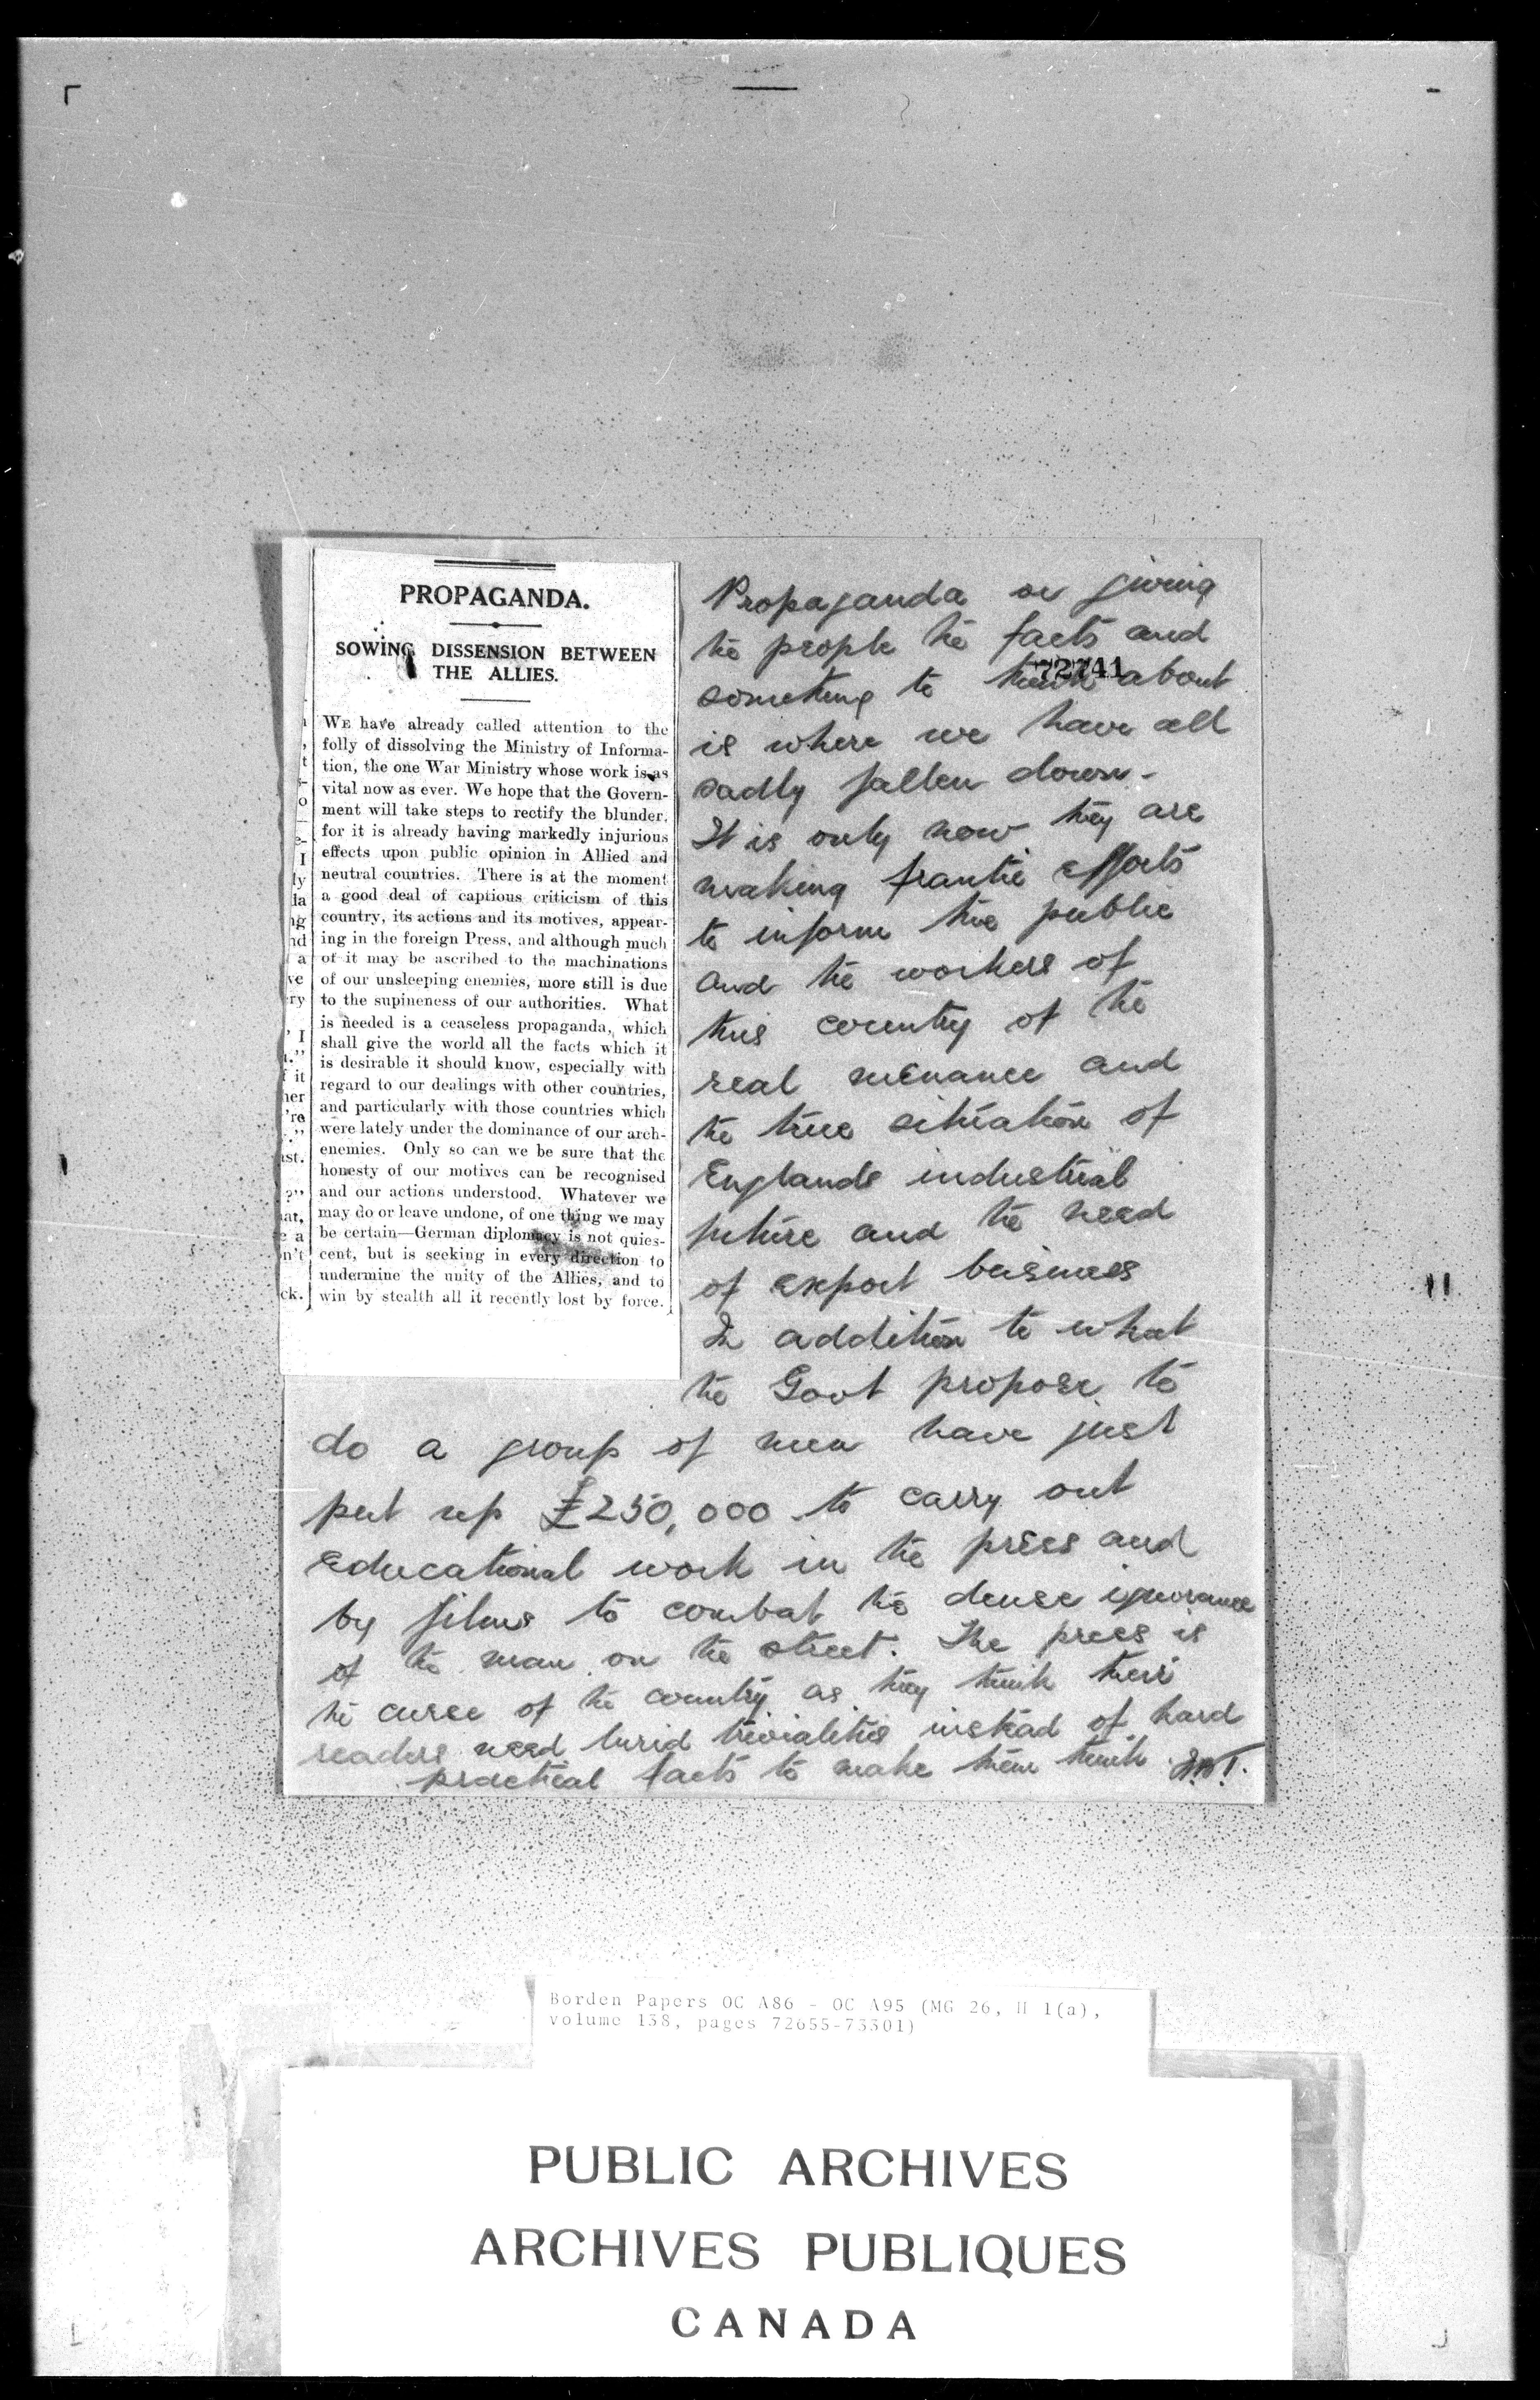 PROPAGANDA.
SOWING DISSENSION BETWEEN
THE ALLIES.
WE have already called attention to the
folly of dissolving the Ministry of Informa-
tion, the one War Ministry whose work is as
vital now as ever. We hope that the Govern-
ment will take steps to rectify the blunder,
for it is already having markedly injurious
effects upon public opinion in Allied and
neutral countries. There is at the moment
a good deal of captious criticism of this
country, its actions and its motives, appear-
ing in the foreign Press, and although much
of it may be ascribed to the machinations
of our unsleeping enemies, more still is due
to the supineness of our authorities. What
is needed is a ceaseless propaganda, which
shall give the world all the facts which it
is desirable it should know, especially with
regard to our dealings with other countries,
and particularly with those countries which
were lately under the dominance of our arch-
enemies. Only so can we be sure that the
honesty of our motives can be recognised
and our actions understood. Whatever we
may do or leave undone, of one thing we may
be certain—German diplomacy is not quies-
cent, but is seeking in every direction to
undermine the unity of the Allies, and to
win by stealth all it recently lost by force.
Propaganda or giving
the people the facts and
72741
something to think about
is where we have all
sadly fallen down -
It is only now they are
making frantic efforts
to inform the public
and the workers of
this country of the
real menance and
the true situation of
Englands industrial
future and the need
of export business
In addition to what
the Govt propose to
do a group of men have just
put up £250,000 to carry out
educational work in the press and
by films to combat the dense ignorance
of the man on the street. The press is
the curse of the country as they think their
readers need lurid trivialities instead of hard
practical facts to make them think
Borden Papers OC A86 - OC A95 (MG 26, H 1(a),
volume 138, pages 72655-73301)
PUBLIC ARCHIVES
ARCHIVES PUBLIQUES
CANADA